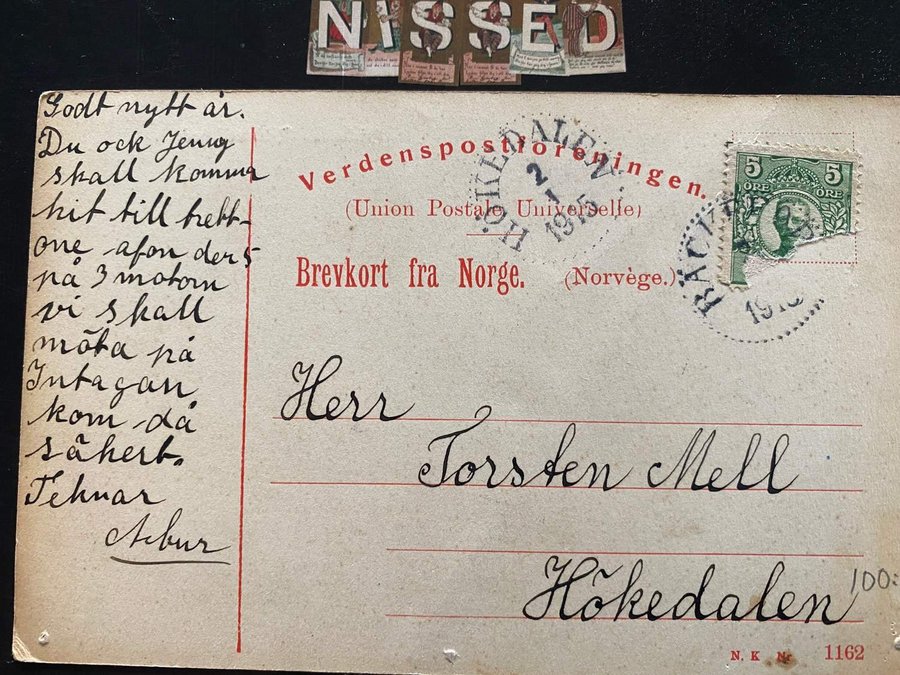 NISSED
Godt nytt år.
Du ock Jenny
skall komma
hit till trett-
one afon der 5
på 3 motom
vi skall
möta på
Intagan
kom då
säkert.
Teknar
Verdenspostforeningen.
(Union Postale Universelle)
Brevkort fra Norge. (Norvège.)
HÖKEDALEN
2
1
1915
5 5
ÖRE ÖRE
BÄCK
191
Herr
Torsten Mell
Hökedalen
100:
N. K. Nr 1162